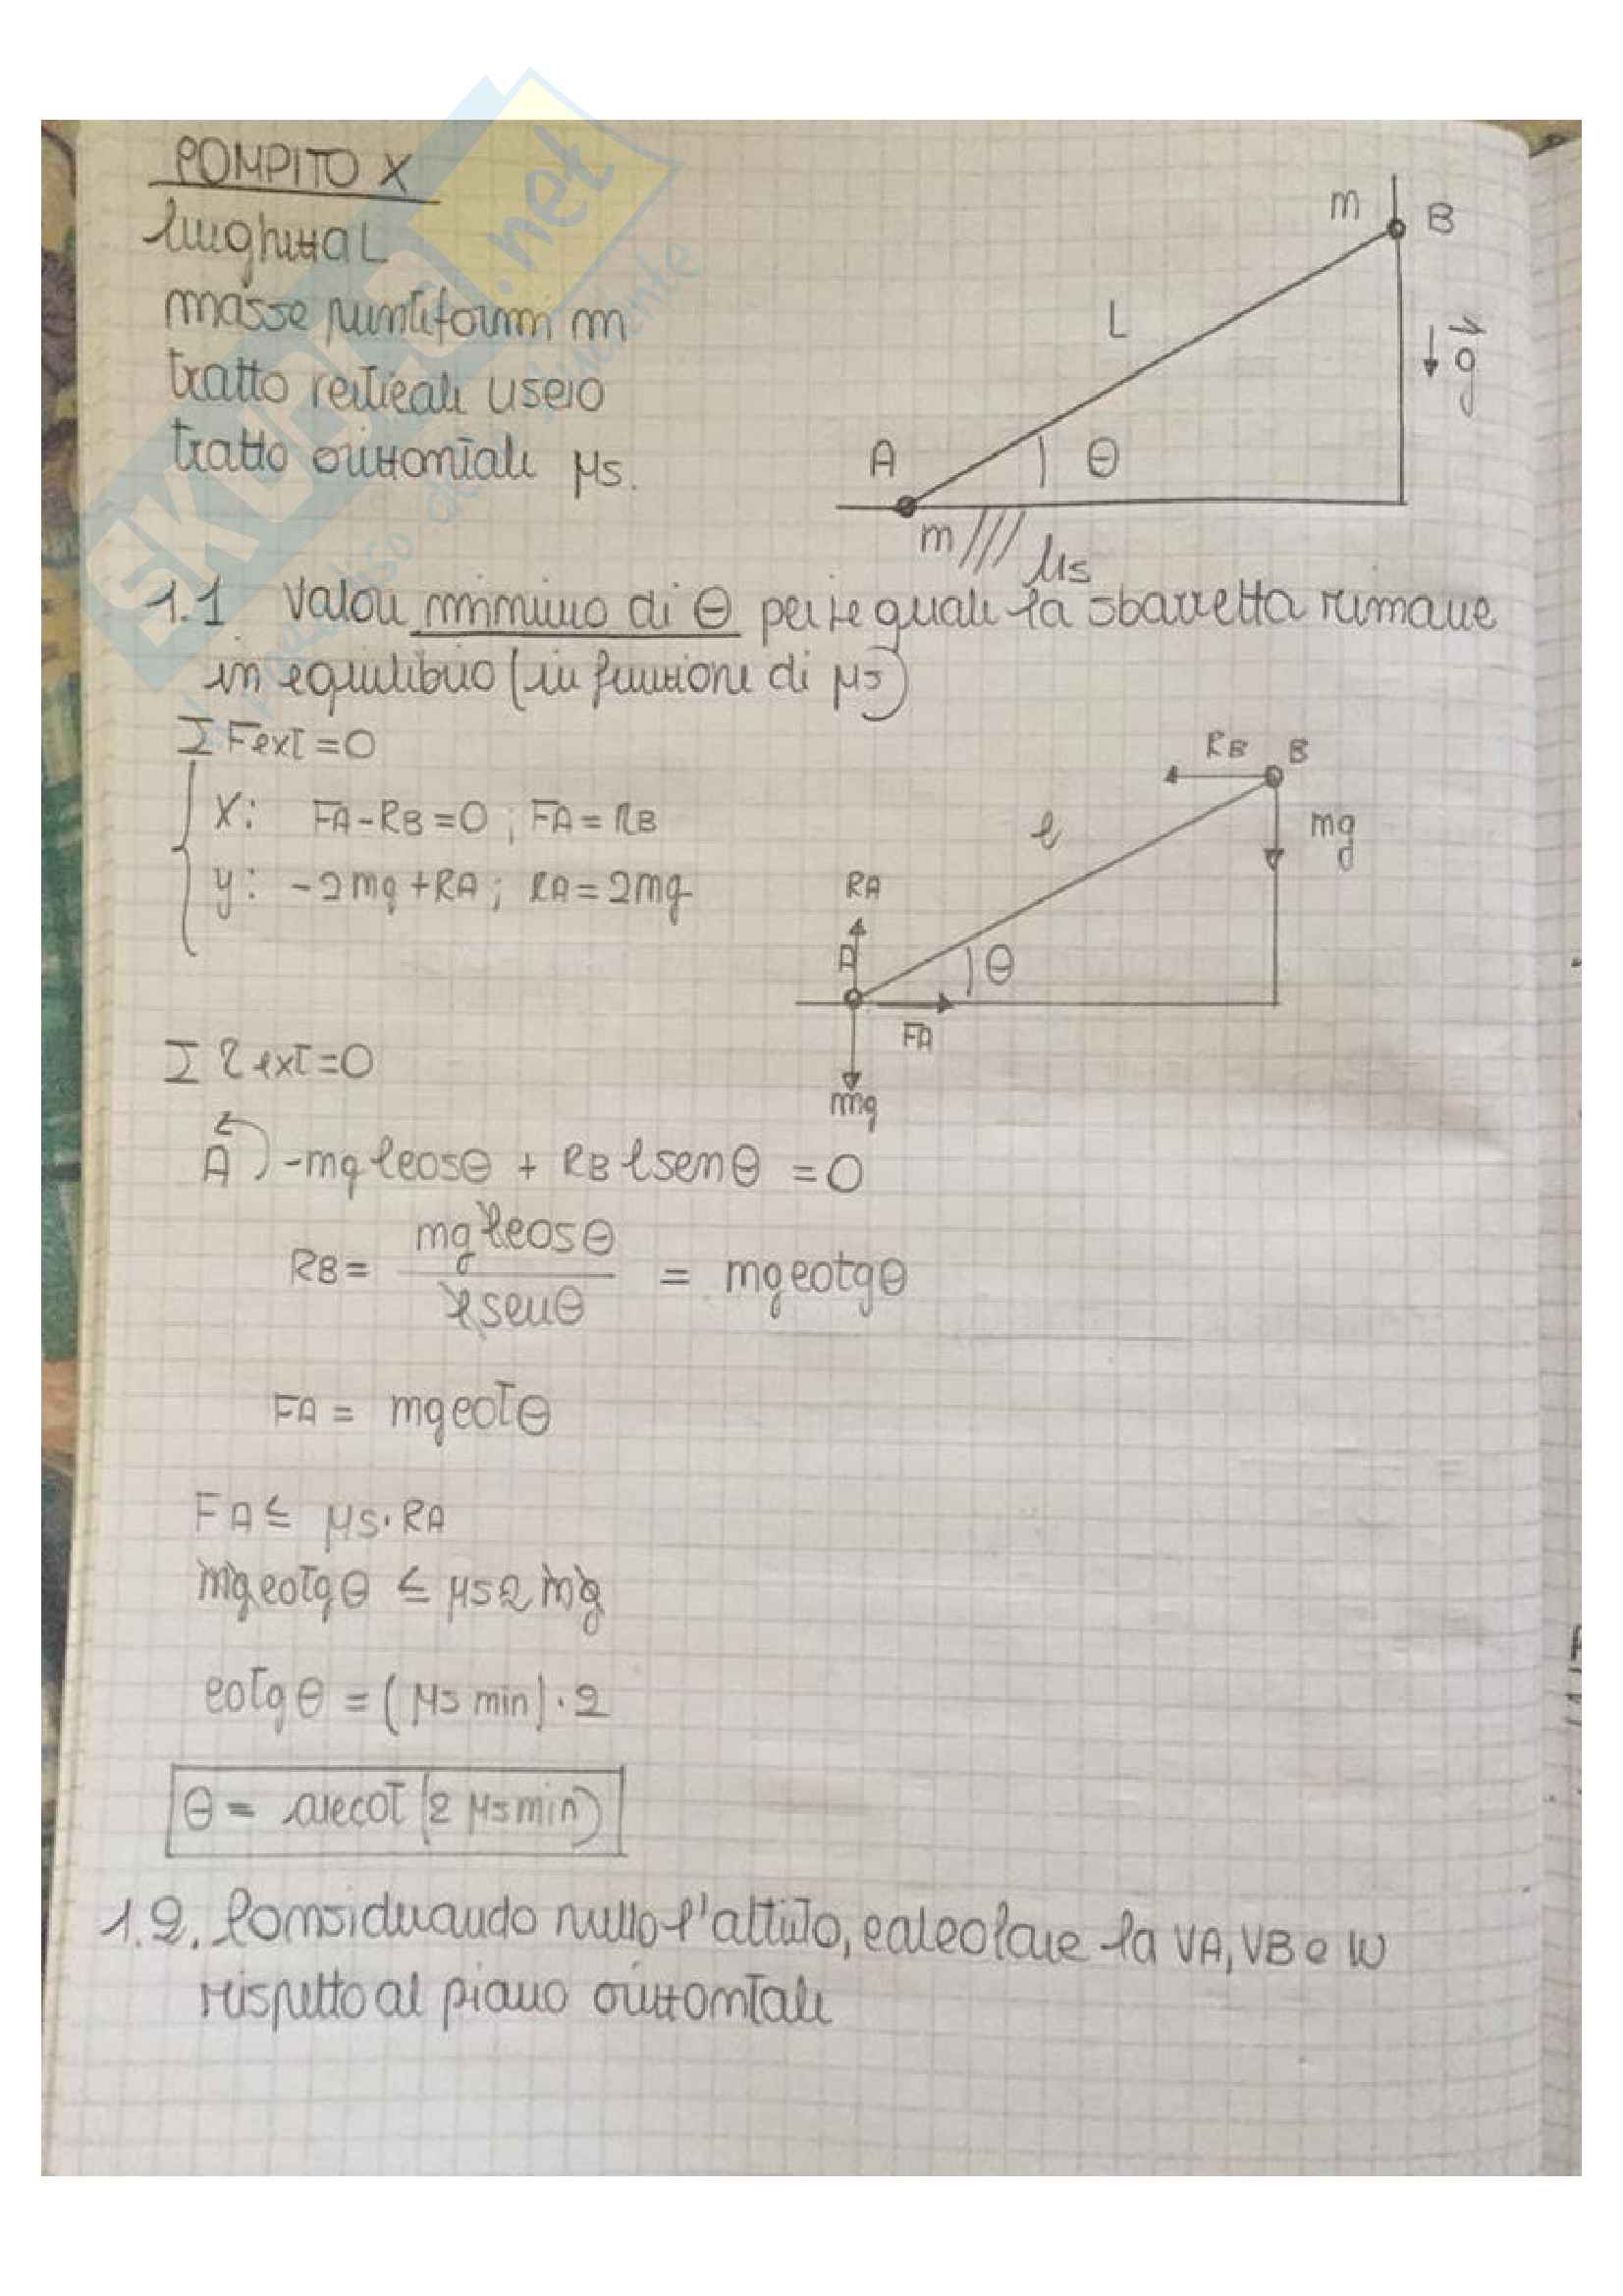 COMPITO X
lunghezza L
masse puntiformi m
tratto verticale liscio
tratto orizzontale μs.
m B
L
g
A θ
m μs
1.1 Valore minimo di θ per le quali la sbarretta rimane
in equilibrio (in funzione di μs)
Σ Fext = 0
X: FA - RB = 0 ; FA = RB
y: -2mg + RA ; RA = 2mg
RB B
l mg
RA
A θ
FA
mg
Σ τext = 0
A) -mg l cosθ + RB l senθ = 0
RB = mg l cosθ / l senθ = mg cotgθ
FA = mg cotθ
FA ≤ μs · RA
mg cotgθ ≤ μs 2 mg
cotg θ = (μs min) · 2
θ = arccot (2 μs min)
1.2. Considerando nullo l'attrito, calcolare la VA, VB e W
rispetto al piano orizzontale
SKUOLA.net
il paradiso dello studente